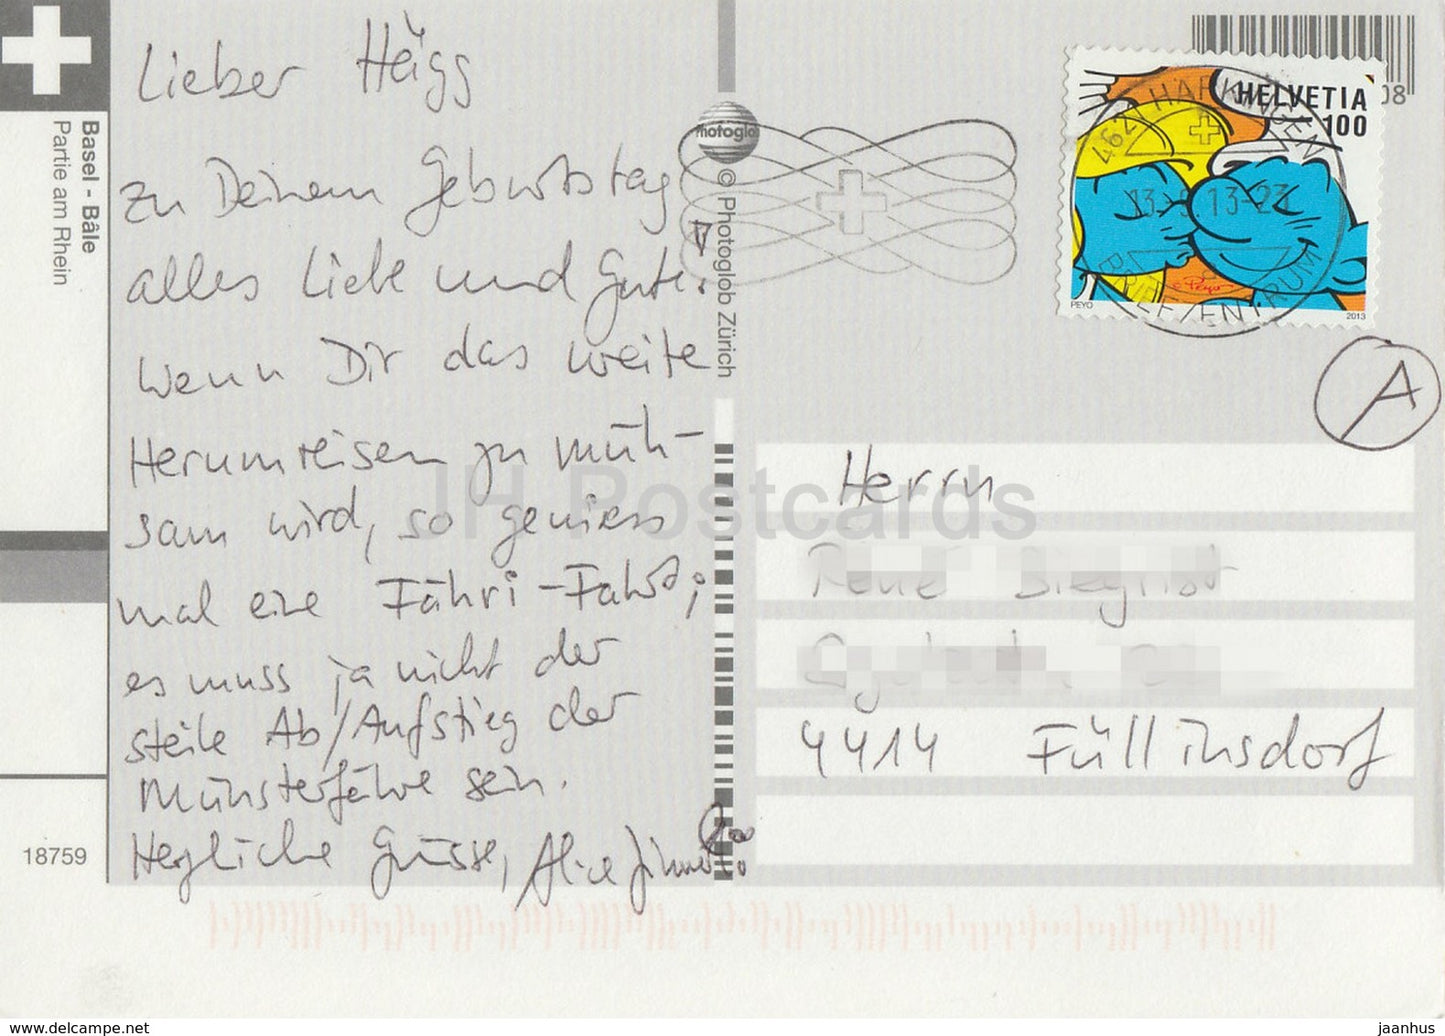 Lieber Häigg
zu Deinem Geburtstag
alles Liebe und Gute!
Wenn Dir das weite
Herumreisen zu müh-
sam wird, so geniess
mal eine Fähri-Fahrt;
es muss ja nicht der
steile Ab/Aufstieg der
Münsterfähre sein.
Herzliche Grüsse, Alice
Basel - Bâle
Partie am Rhein
18759
Photoglob
© Photoglob Zürich
HELVETIA
100
PEYO
2013
© Peyo
4621 HÄRKINGEN
13.-5.13-23
BRIEFZENTRUM
08
A
Herrn
4414 Füllinsdorf
JH Postcards
www.delcampe.net
jaanhus